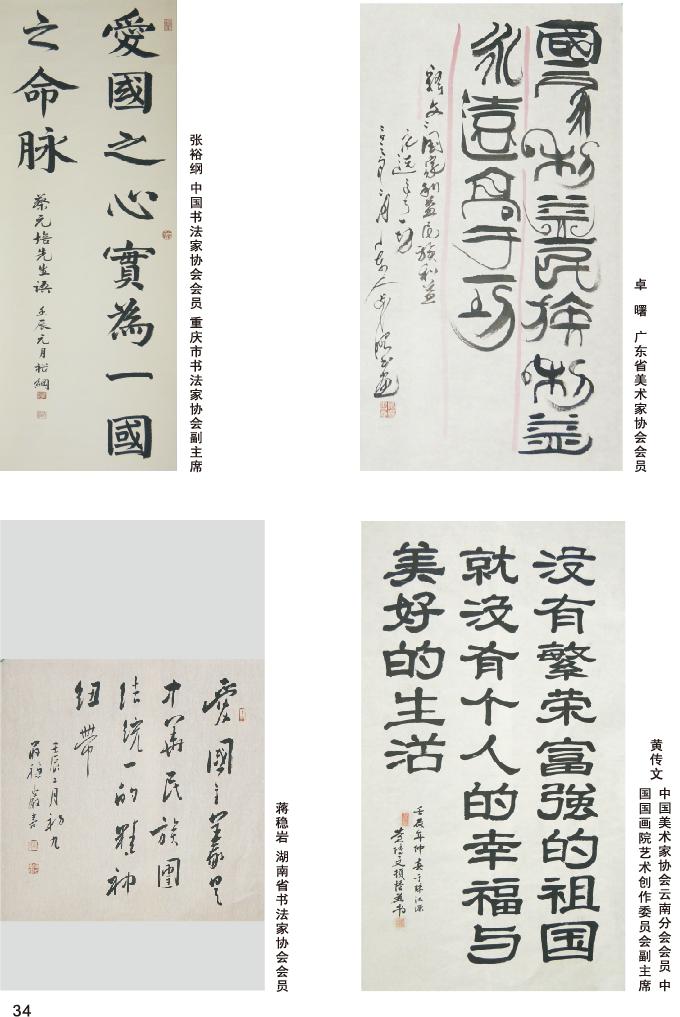 愛國之心實為一國
之命脉
蔡元培先生語 壬辰元月裕綱
张裕纲 中国书法家协会会员 重庆市书法家协会副主席
國家利益民族利益
永遠高于一切
釋文:國家利益民族利益
永遠高于一切
卓 曙 广东省美术家协会会员
愛國主義是
中華民族團
结統一的精神
纽帶
壬辰二月初九
蒋稳岩 湖南省书法家协会会员
没有繁荣富强的祖国
就没有个人的幸福与
美好的生活
黄传文 中国美术家协会云南分会会员 中
国国画院艺术创作委员会副主席
34